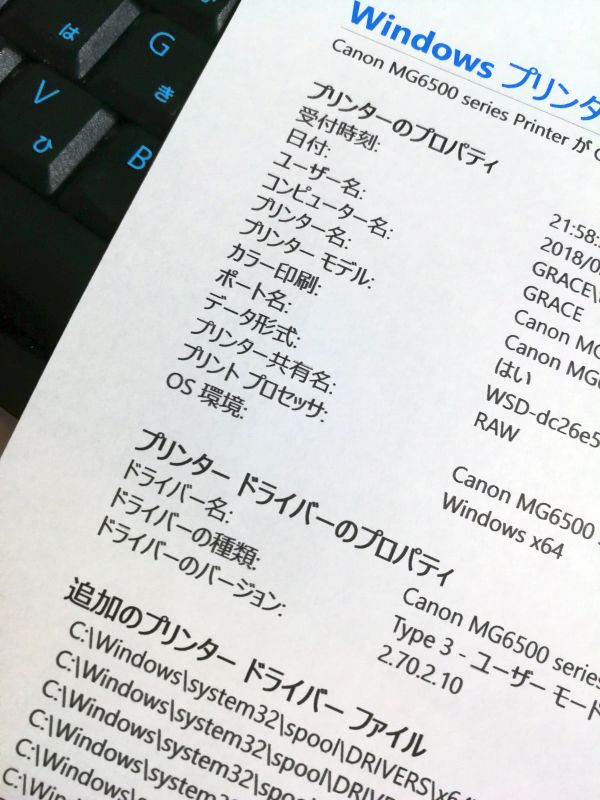 G
は
き
V
ひ
B
Windows プリンタ
Canon MG6500 series Printer が
プリンターのプロパティ
受付時刻: 21:58:
日付: 2018/0
ユーザー名: GRACE\
コンピューター名: GRACE
プリンター名: Canon MG
プリンター モデル: Canon MG
カラー印刷: はい
ポート名: WSD-dc26e5
データ形式: RAW
プリンター共有名:
プリント プロセッサ: Canon MG6500
OS 環境: Windows x64
プリンター ドライバーのプロパティ
ドライバー名: Canon MG6500 series
ドライバーの種類: Type 3 - ユーザー モード
ドライバーのバージョン: 2.70.2.10
追加のプリンター ドライバー ファイル
C:\Windows\system32\spool\DRIVERS\x64
C:\Windows\system32\spool\DRIVE
C:\Windows\system32\spool\
C:\Windows\system32\
C:\Windows\syst
C:\Windo